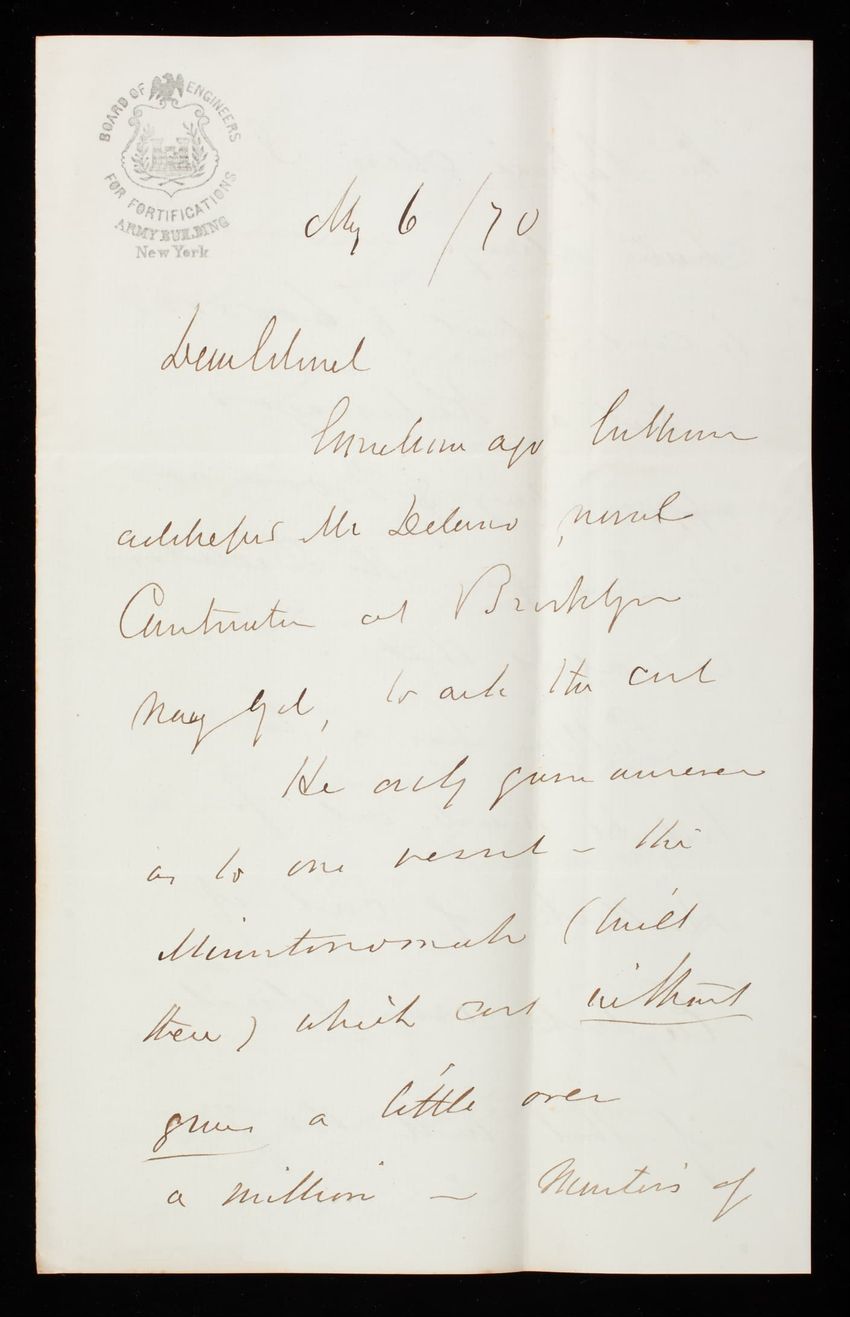 BOARD OF ENGINEERS
FOR FORTIFICATIONS
ARMY BUILDING
New York
My 6/70
Dear Colonel
Some time ago Cuthburn
addressed Mr Delano, naval
Contructor at Brooklyn
Navy Yd, to ask the cost
He only gave answer
as to one vessel – the
Miantonomah (built
there) which cost without
guns a little over
a million – Monitors of